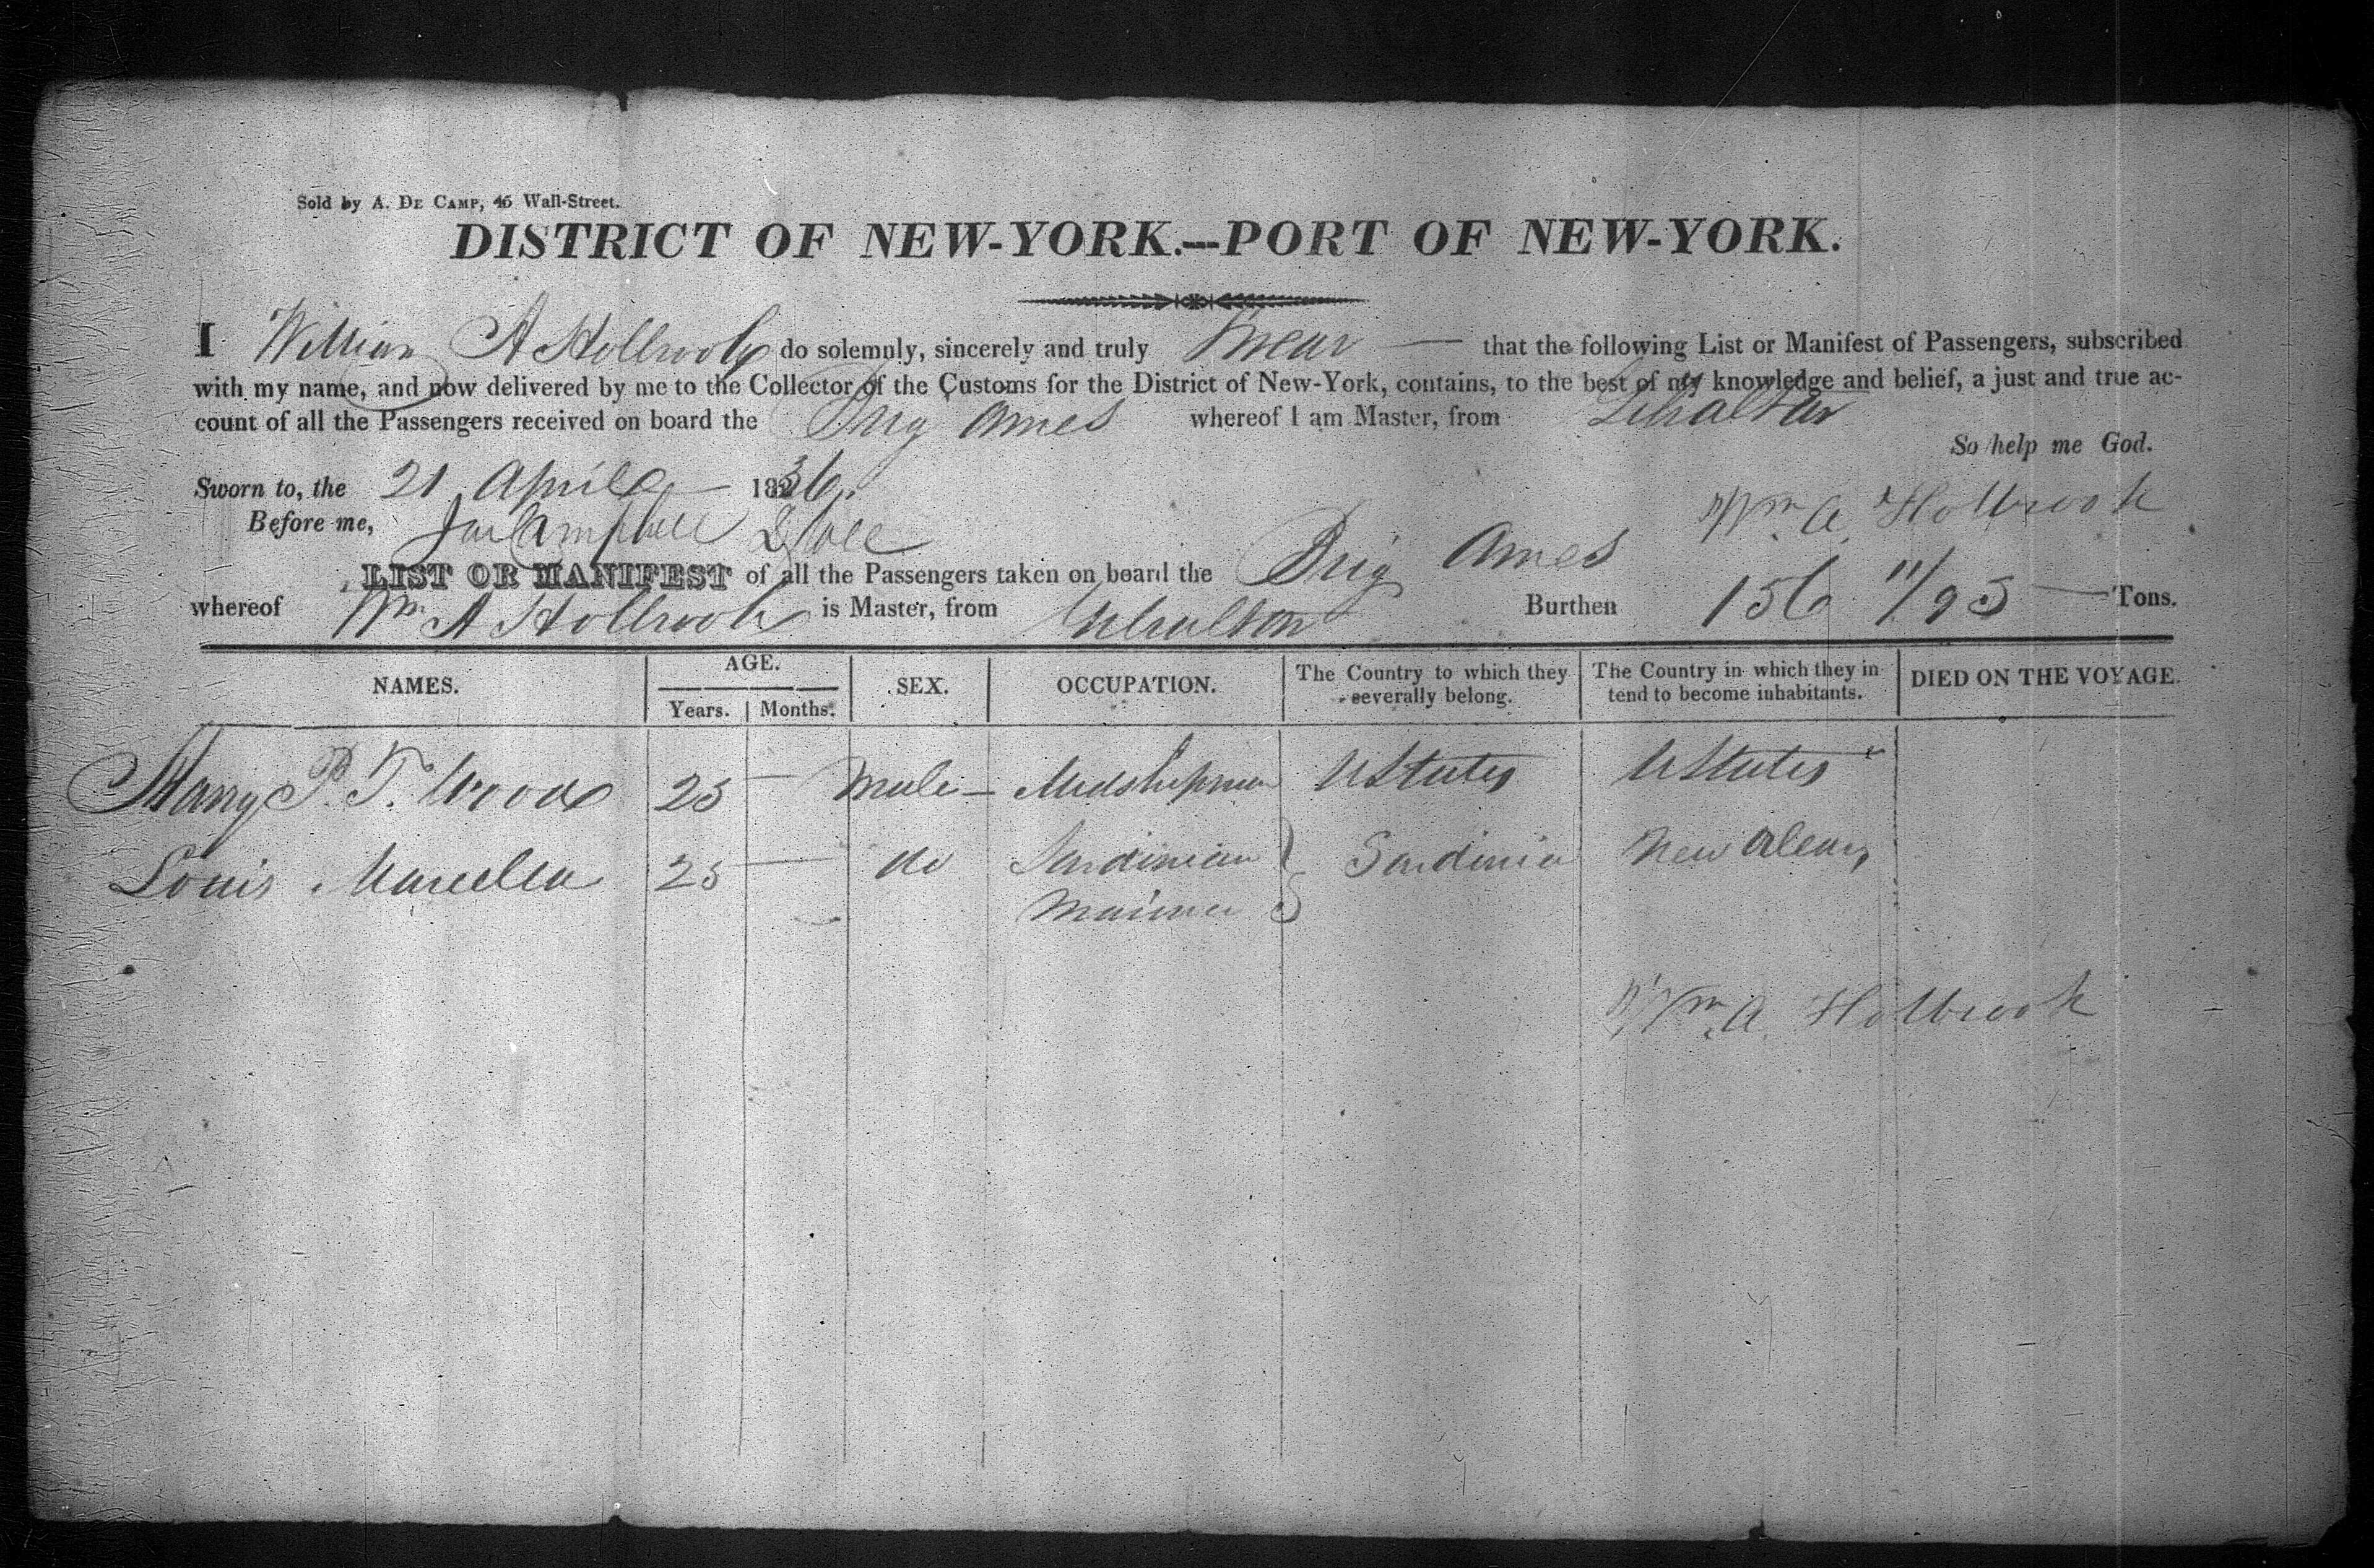 Sold by A. DE CAMP, 46 Wall-Street.
DISTRICT OF NEW-YORK.—PORT OF NEW-YORK.
I William A Holbrook do solemnly, sincerely and truly Swear — that the following List or Manifest of Passengers, subscribed
with my name, and now delivered by me to the Collector of the Customs for the District of New-York, contains, to the best of my knowledge and belief, a just and true ac-
count of all the Passengers received on board the Brig Ames whereof I am Master, from Gibraltar
So help me God.
Sworn to, the 21 April — 1836.
Before me, Campbell
Wm A Holbrook
LIST OR MANIFEST of all the Passengers taken on board the Brig Ames
whereof Wm A Holbrook is Master, from Gibraltar Burthen 156 11/95 — Tons.
NAMES. AGE. SEX. OCCUPATION. The Country to which they severally belong. The Country in which they in tend to become inhabitants. DIED ON THE VOYAGE.
Years. Months.
P. T. Wood 25 — Male — Midshipman U States U States
Louis 25 — do Sardinian } Sardinia New Orleans
Mariner
Wm A Holbrook